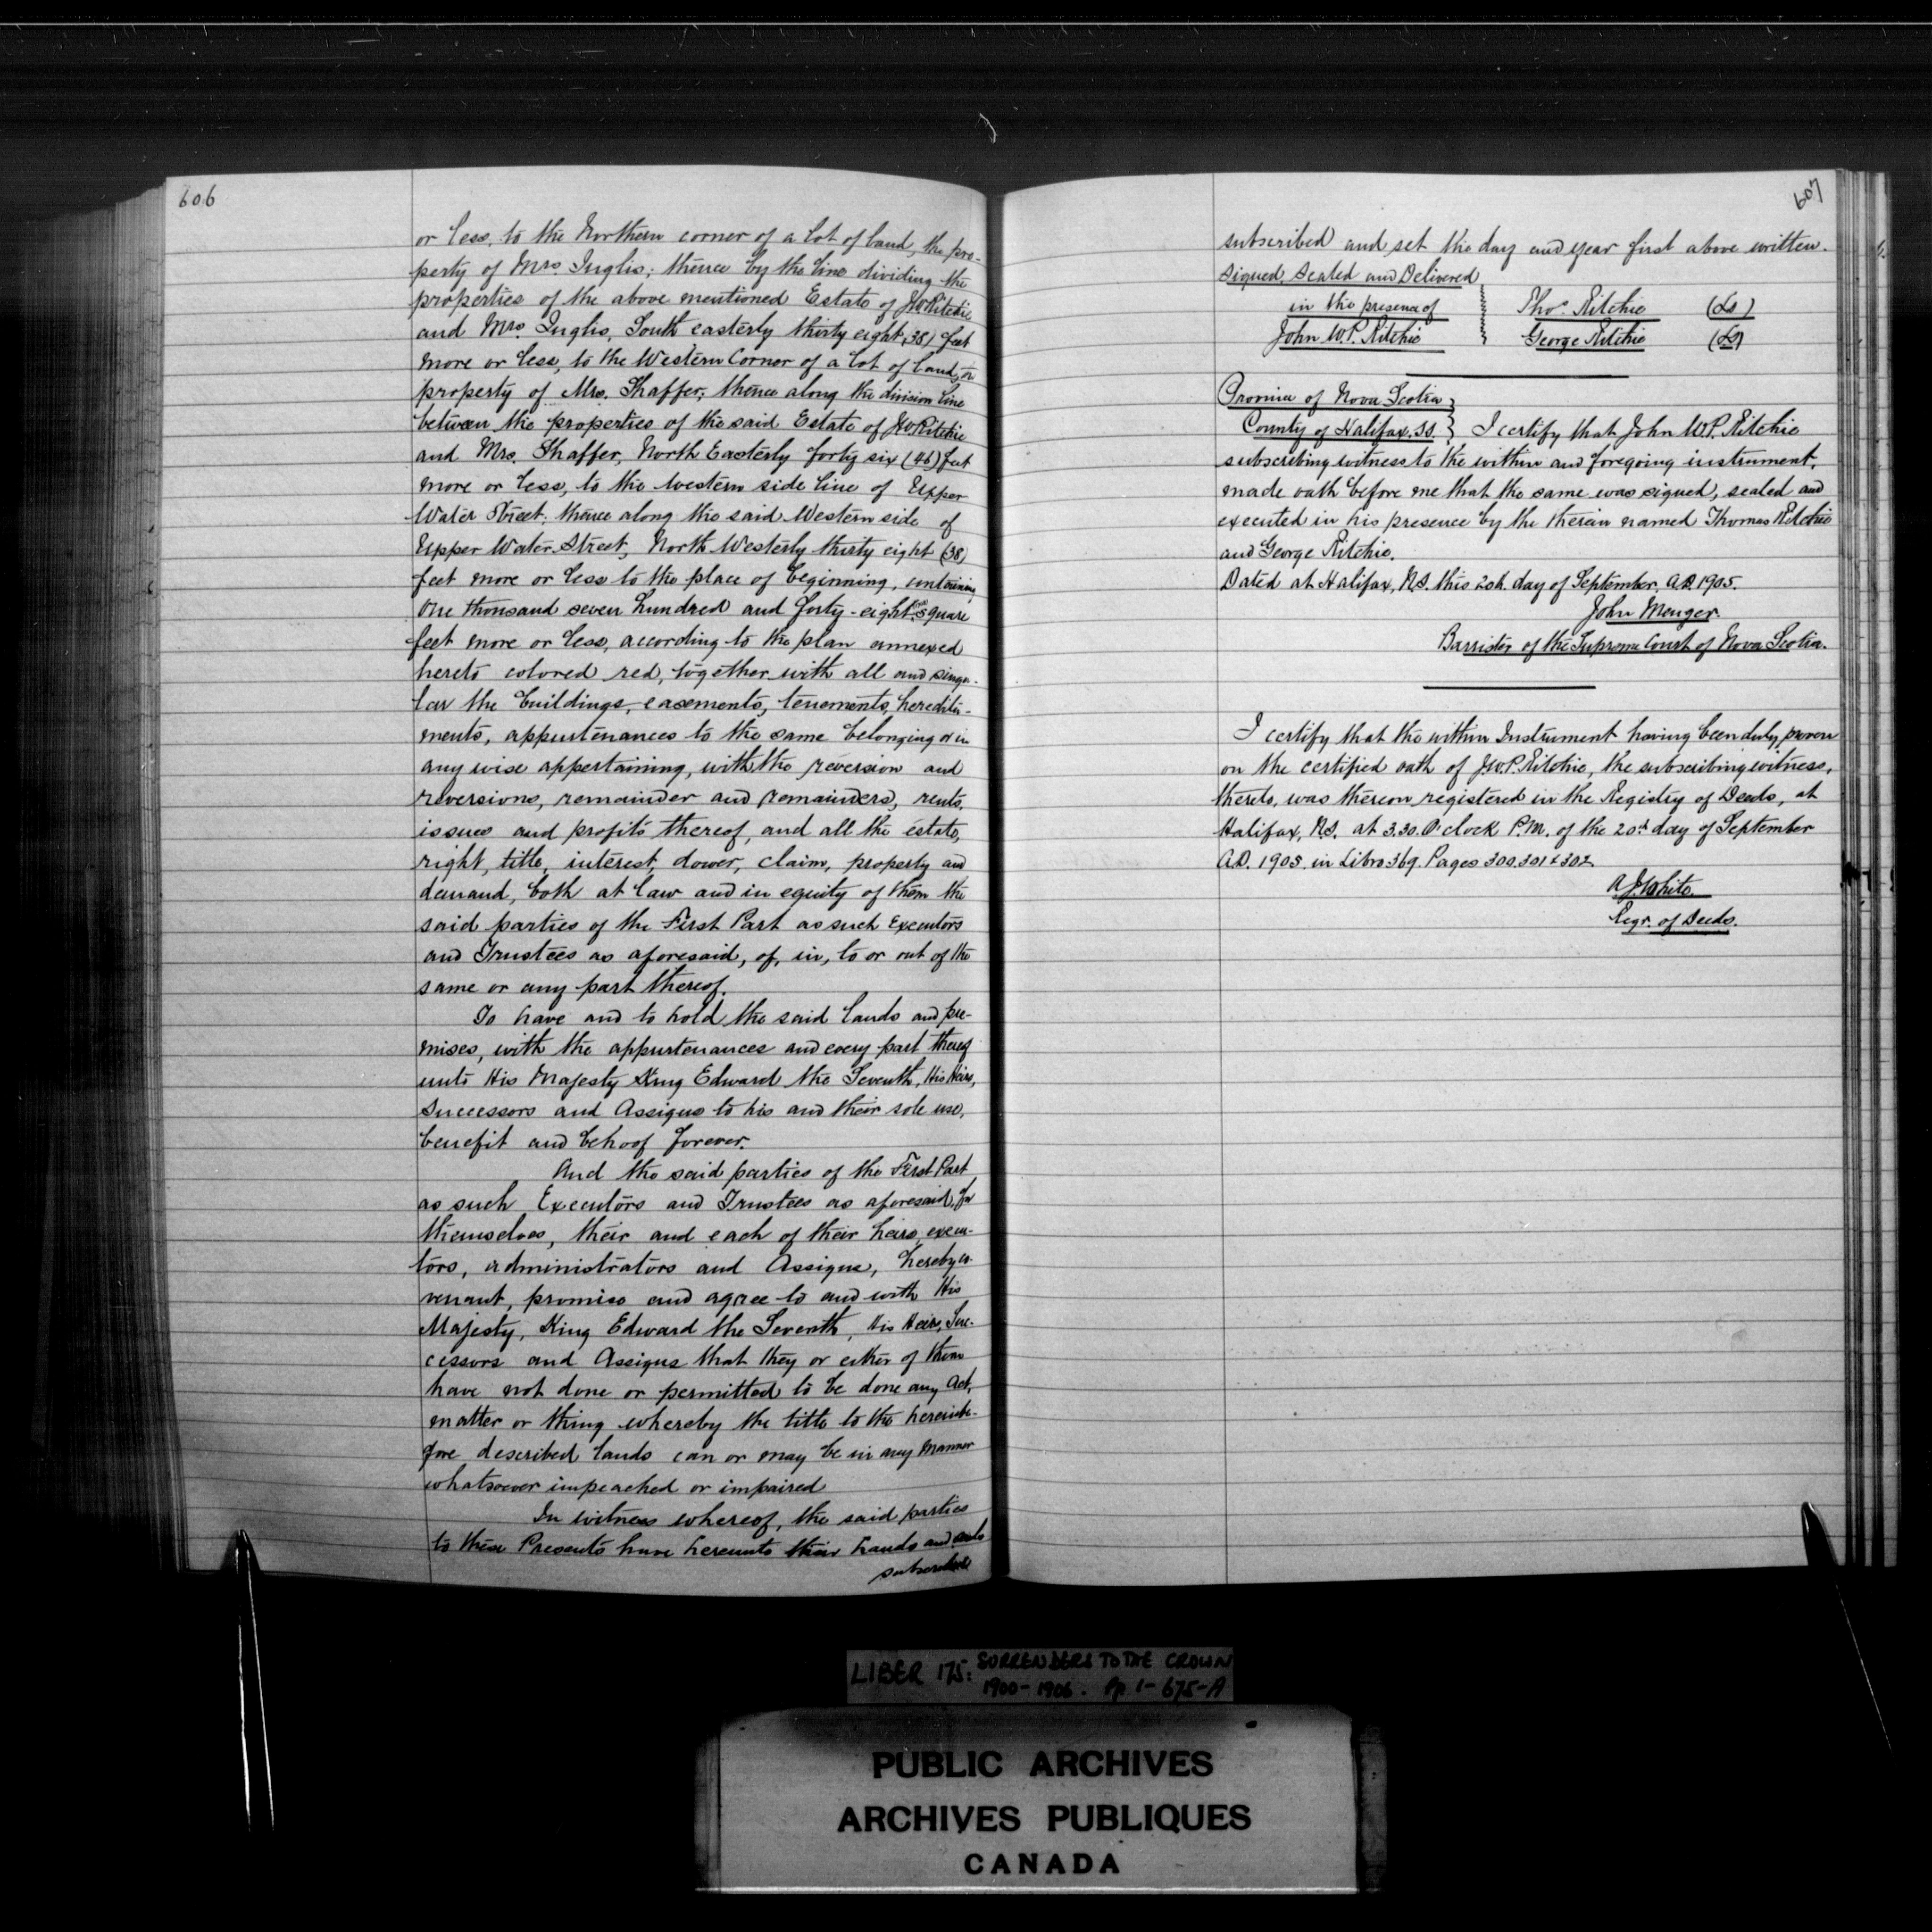 606
or less, to the Northern corner of a lot of land, the pro-
perty of Mrs Inglis; thence by the line dividing the
properties of the above mentioned Estate of J.W. Ritchie
and Mrs. Inglis, South easterly thirty eight (38) feet
more or less, to the Western Corner of a lot of land, or
property of Mrs. Shaffer; thence along the division line
between the properties of the said Estate of J.W. Ritchie
and Mrs. Shaffer, North Easterly forty six (46) feet
more or less, to the western side line of Upper
Water Street; thence along the said Western side of
Upper Water Street, North Westerly thirty eight (38)
feet more or less to the place of beginning, containing
One thousand seven hundred and forty-eight (1748) square
feet more or less, according to the plan annexed
hereto colored red, together with all and singu-
lar the buildings, easements, tenements, heredita-
ments, appurtenances to the same belonging or in
any wise appertaining, with the reversion and
reversions, remainder and remainders, rents,
issues and profits thereof, and all the estate,
right, title, interest, dower, claim, property and
demand, both at law and in equity of them the
said parties of the First Part as such Executors
and Trustees as aforesaid, of, in, to or out of the
same or any part thereof.
To have and to hold the said lands and pre-
mises, with the appurtenances and every part thereof
unto His Majesty King Edward the Seventh, His Heirs,
Successors and Assigns to his and their sole use,
benefit and behoof forever.
And the said parties of the First Part
as such Executors and Trustees as aforesaid, for
themselves, their and each of their heirs, execu-
tors, administrators and Assigns, hereby co-
venant, promise and agree to and with His
Majesty, King Edward the Seventh, His Heirs, Suc-
cessors and Assigns that they or either of them
have not done or permitted to be done any Act,
matter or thing whereby the title to the hereinbe-
fore described lands can or may be in any manner
whatsoever impeached or impaired
In witness whereof, the said parties
to these Presents have hereunto their hands and seals
subscribed
607
subscribed and set the day and year first above written.
Signed, Sealed and Delivered
in the presence of } Thos. Ritchie (LS)
John W.P. Ritchie } George Ritchie (LS)
Province of Nova Scotia }
County of Halifax. SS. } I certify that John W.P. Ritchie
subscribing witness to the within and foregoing instrument,
made oath before me that the same was signed, sealed and
executed in his presence by the therein named Thomas Ritchie
and George Ritchie.
Dated at Halifax, N.S. this 20th. day of September. A.D. 1905.
John Menger.
Barrister of the Supreme Court of Nova Scotia.
I certify that the within Instrument having been duly proven
on the certified oath of J.W.P. Ritchie, the subscribing witness,
thereto, was thereon registered in the Registry of Deeds, at
Halifax, N.S. at 3.30. O'clock P.M. of the 20th day of September
A.D. 1905. in Libro 369. Pages 300.301 & 302
A.J. White.
Regr. of Deeds.
LIBER 175: SURRENDERS TO THE CROWN
1900-1906. Pp. 1-675-A
PUBLIC ARCHIVES
ARCHIVES PUBLIQUES
CANADA